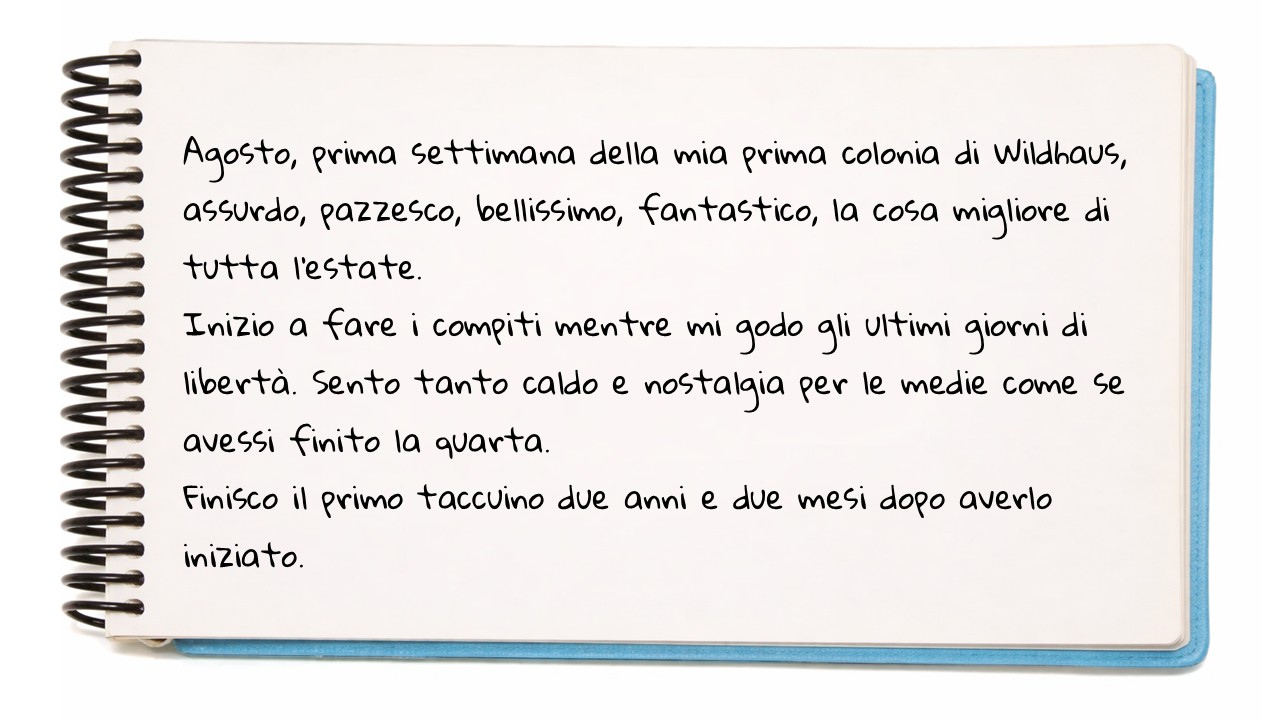 Agosto, prima settimana della mia prima colonia di Wildhaus,
assurdo, pazzesco, bellissimo, fantastico, la cosa migliore di
tutta l'estate.
Inizio a fare i compiti mentre mi godo gli ultimi giorni di
libertà. Sento tanto caldo e nostalgia per le medie come se
avessi finito la quarta.
Finisco il primo taccuino due anni e due mesi dopo averlo
iniziato.